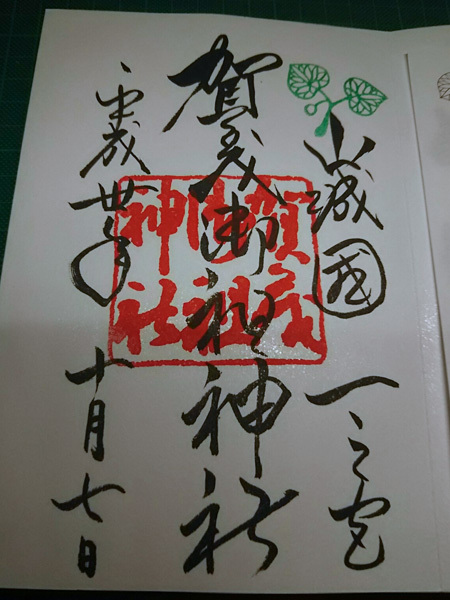 山城國 一之宮
賀茂御祖神社
平成卅年 十月七日
賀茂
御祖
神社